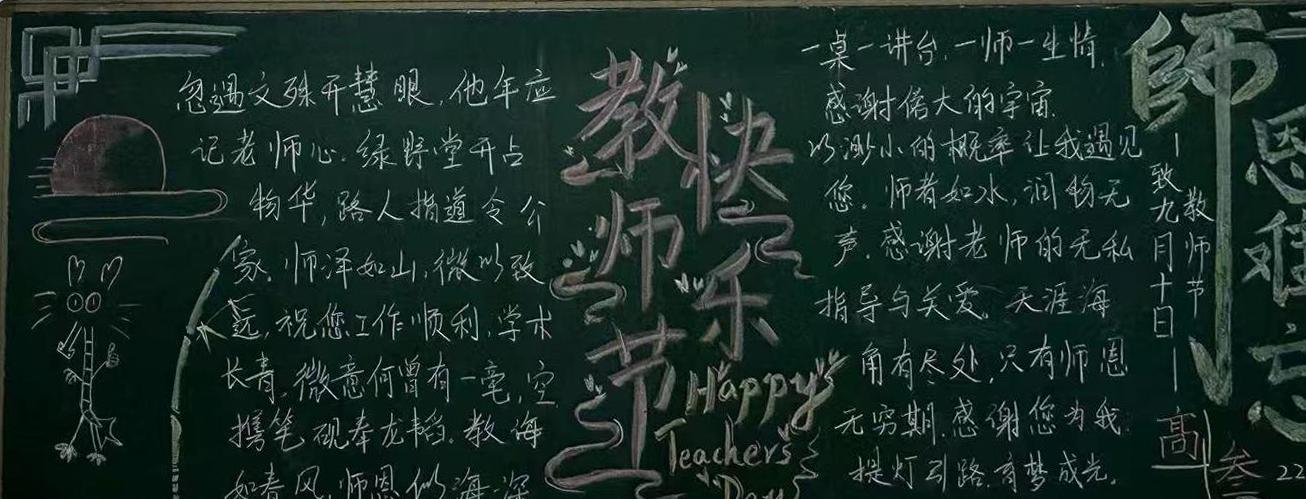 忽遇文殊开慧眼,他年应
记老师心.绿野堂开占
物华,路人指道令公
家.师泽如山,微以致
远,祝您工作顺利,学术
长青,微意何曾有一毫,空
携笔砚奉龙韬.教诲
如春风,师恩似海深
教师节
快乐
Happy
Teachers
Day
一桌一讲台,一师一生情,
感谢偌大的宇宙
以渺小的概率让我遇见
您.师者如水,润物无
声.感谢老师的无私
指导与关爱。天涯海
角有尽处,只有师恩
无穷期.感谢您为我
提灯引路,育梦成光。
師恩难忘
—致教师节
九月十日—
高叁
22